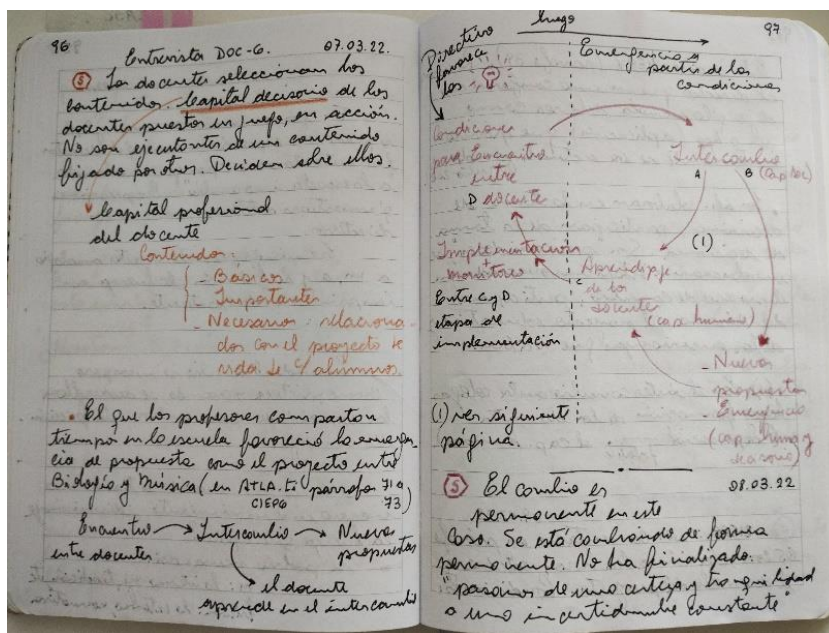 96
Entrevista DOC-6. 07.03.22.
5 Los docentes seleccionan los
contenidos. Capital decisorio de los
docentes puestos en juego, en acción.
No son ejecutantes de un contenido
fijado por otros. Deciden sobre ellos.
Capital profesional
del docente
Contenidos:
- Básicos
- Importantes
- Necesarios: relaciona-
dos con el proyecto de
vida de c/ alumnos.
• El que los profesores compartan
tiempo en la escuela favoreció la emergen-
cia de propuesta como el proyecto entre
Biología y Música (en ATLA.ti párrafos 71 a
CIEPG 73)
Encuentro → Intercambio → Nuevas
entre docentes propuestas
el docente
aprende en el intercambio
97
Directivo luego
favorece
las
Emergencia a
partir de las
condiciones
Condiciones
para Encuentro
entre
D docente
Intercambio
A B (Cap soc)
(1)
Implementación
+
monitoreo
C Aprendizaje
de los
docente
(cap. humano)
Entre C y D
etapa de
implementación
- Nuevas
propuestas
- Emergencia
(cap. humano y
decisorio)
(1) ver siguiente
página.
5 El cambio es 08.03.22
permanente en este
caso. Se está cambiando de forma
permanente. No ha finalizado.
"pasamos de una certeza y tranquilidad
a una incertidumbre constante"